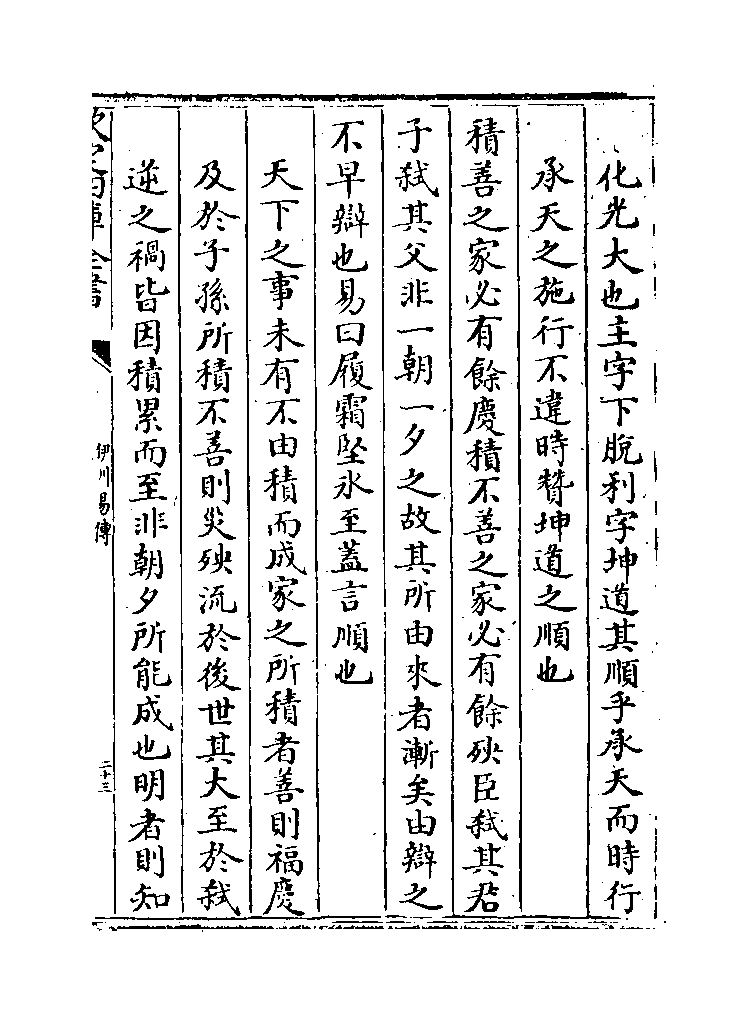 化光大也主字下脫利字坤道其順乎承天而時行
承天之施行不違時贊坤道之順也
積善之家必有餘慶積不善之家必有餘殃臣弑其君
子弑其父非一朝一夕之故其所由來者漸矣由辯之
不早辯也易曰履霜堅冰至蓋言順也
天下之事未有不由積而成家之所積者善則福慶
及於子孫所積不善則災殃流於後世其大至於弑
逆之禍皆因積累而至非朝夕所能成也明者則知
欽定四庫全書
伊川易傳
二十三